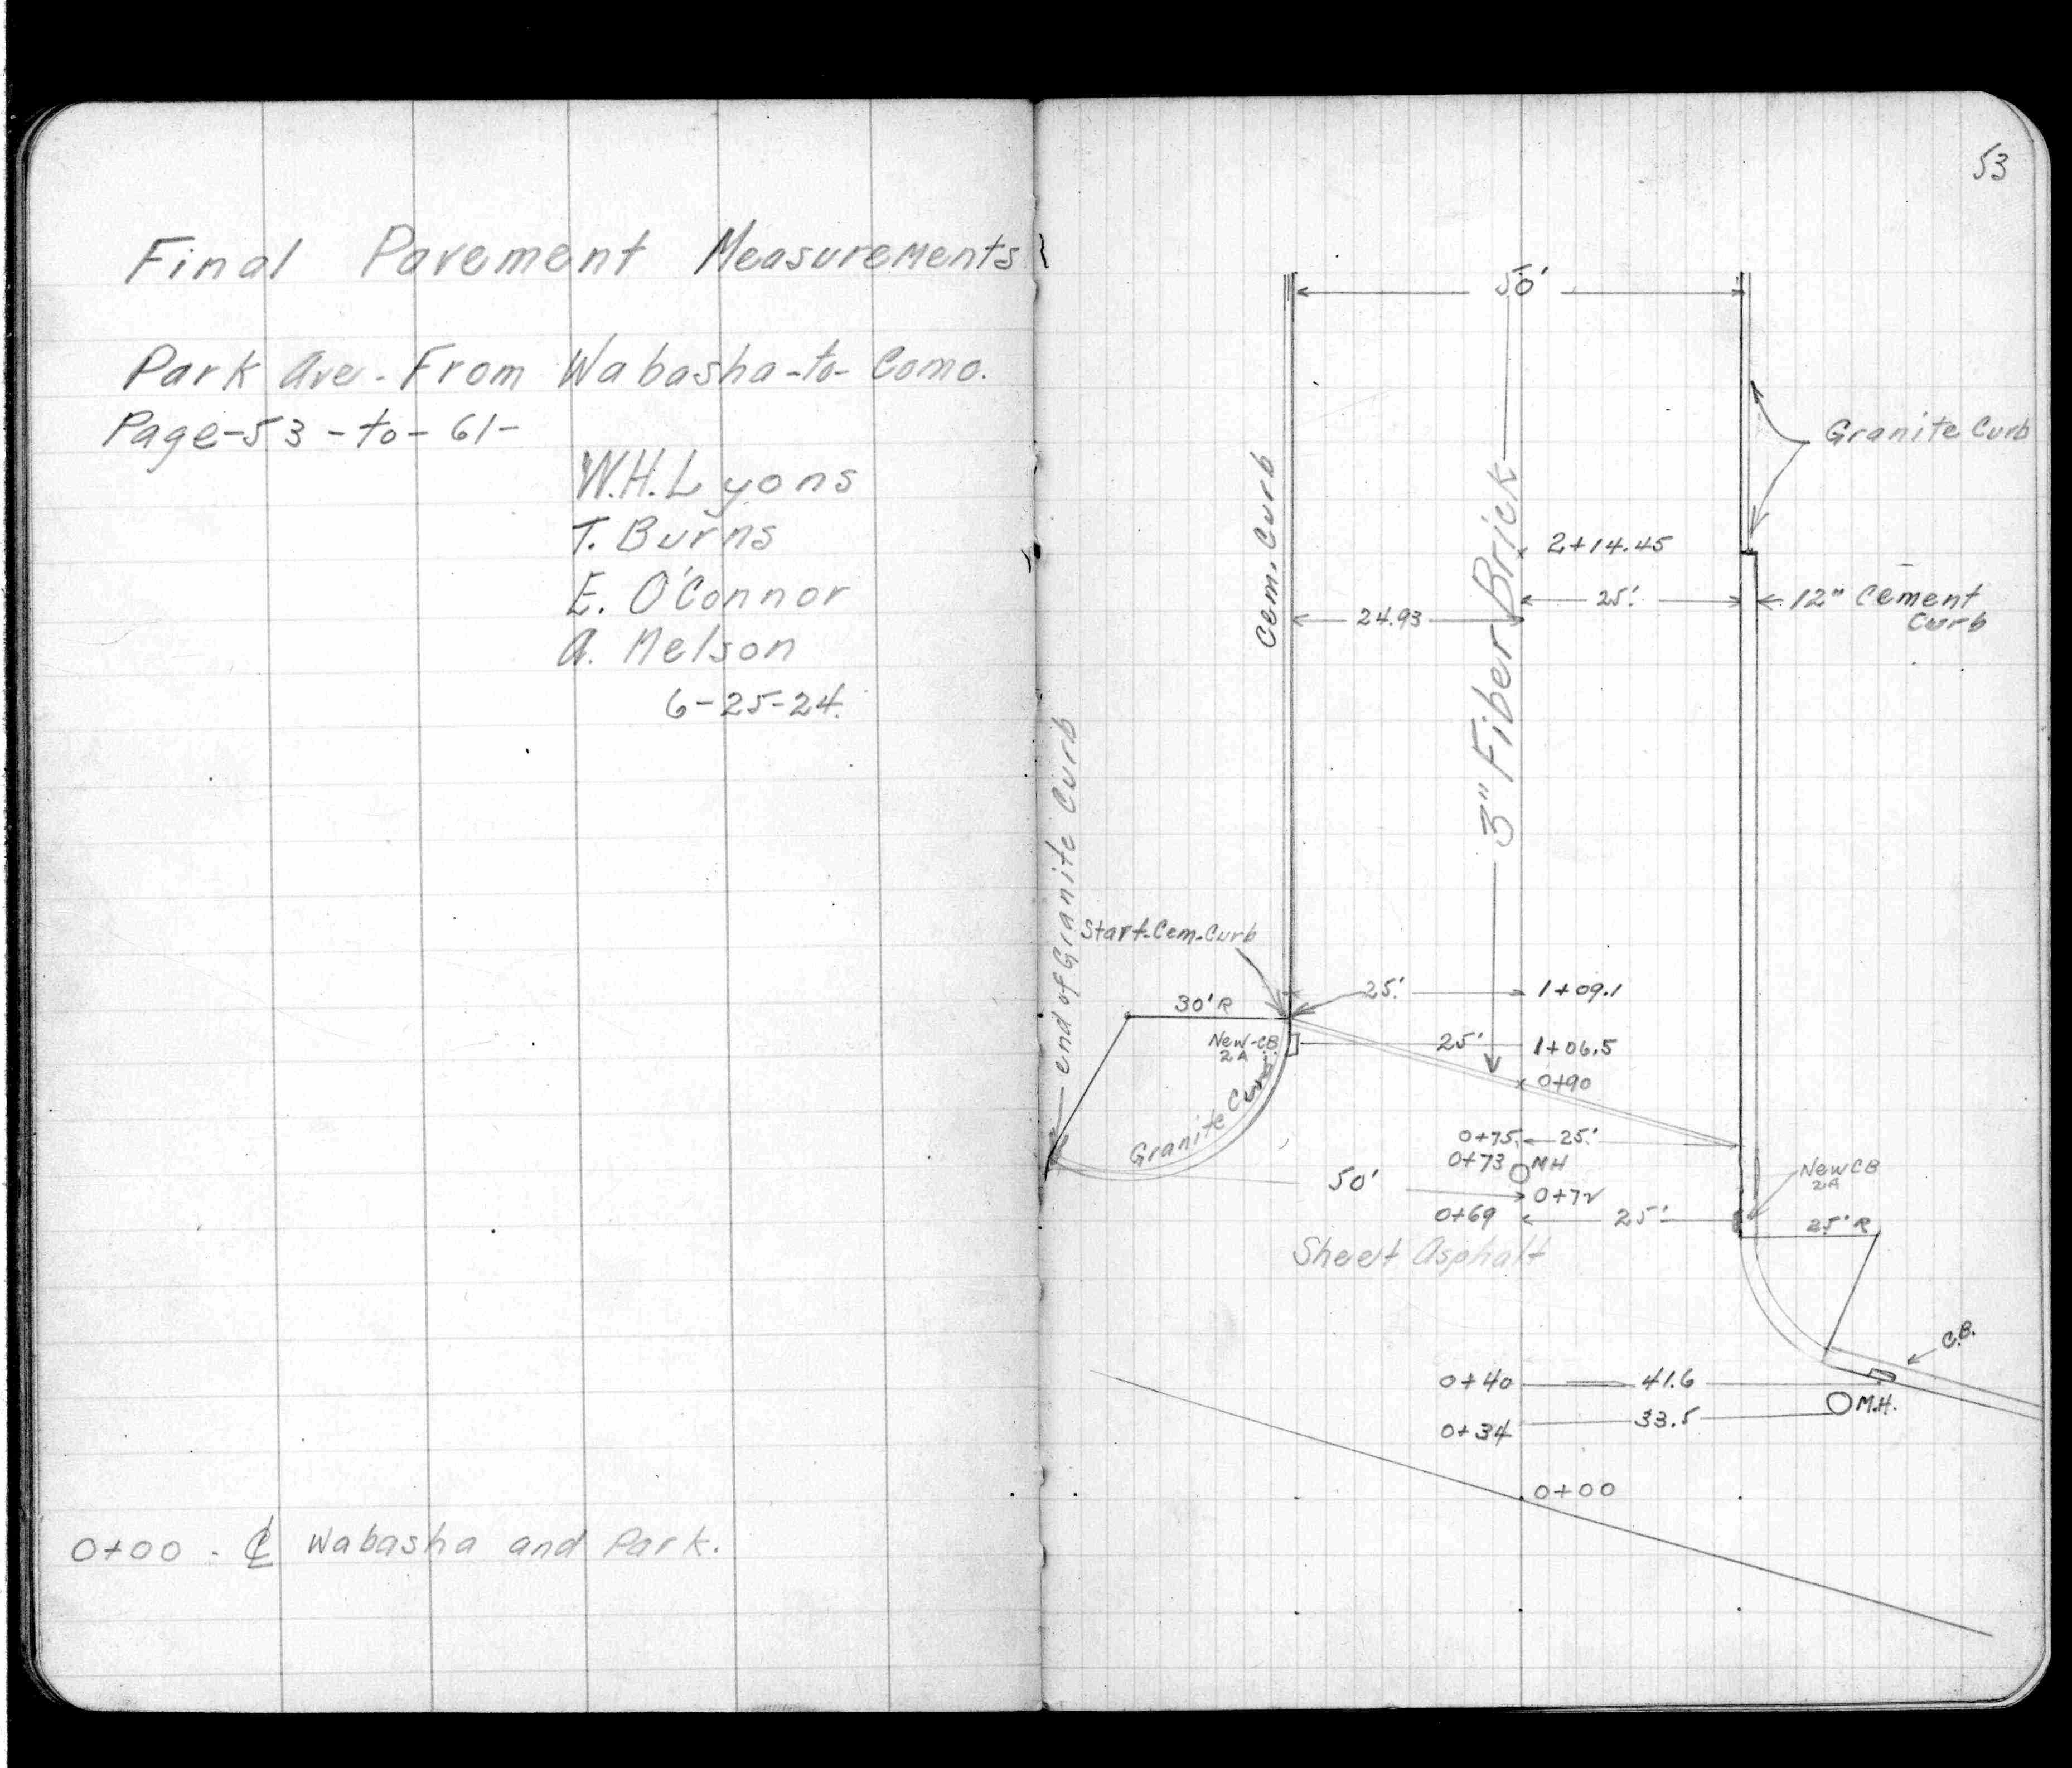 Final Pavement Measurements
Park Ave. From Wabasha-to-Como.
Page-53-to-61-
W.H. Lyons
T. Burns
E. O'Connor
A. Nelson
6-25-24.
0+00 - ℄ Wabasha and Park.
53
50'
Granite Curb
Cem. Curb
3" Fiber Brick
2+14.45
25'
24.93
12" Cement
Curb
end of Granite Curb
Start-Cem-Curb
25'
1+09.1
30' R
New-CB
2A
25'
1+06.5
0+90
Granite Curb
0+75
25'
0+73
MH
New CB
2A
50'
0+72
0+69
25'
25' R
Sheet Asphalt
C.B.
0+40
41.6
M.H.
0+34
33.5
0+00